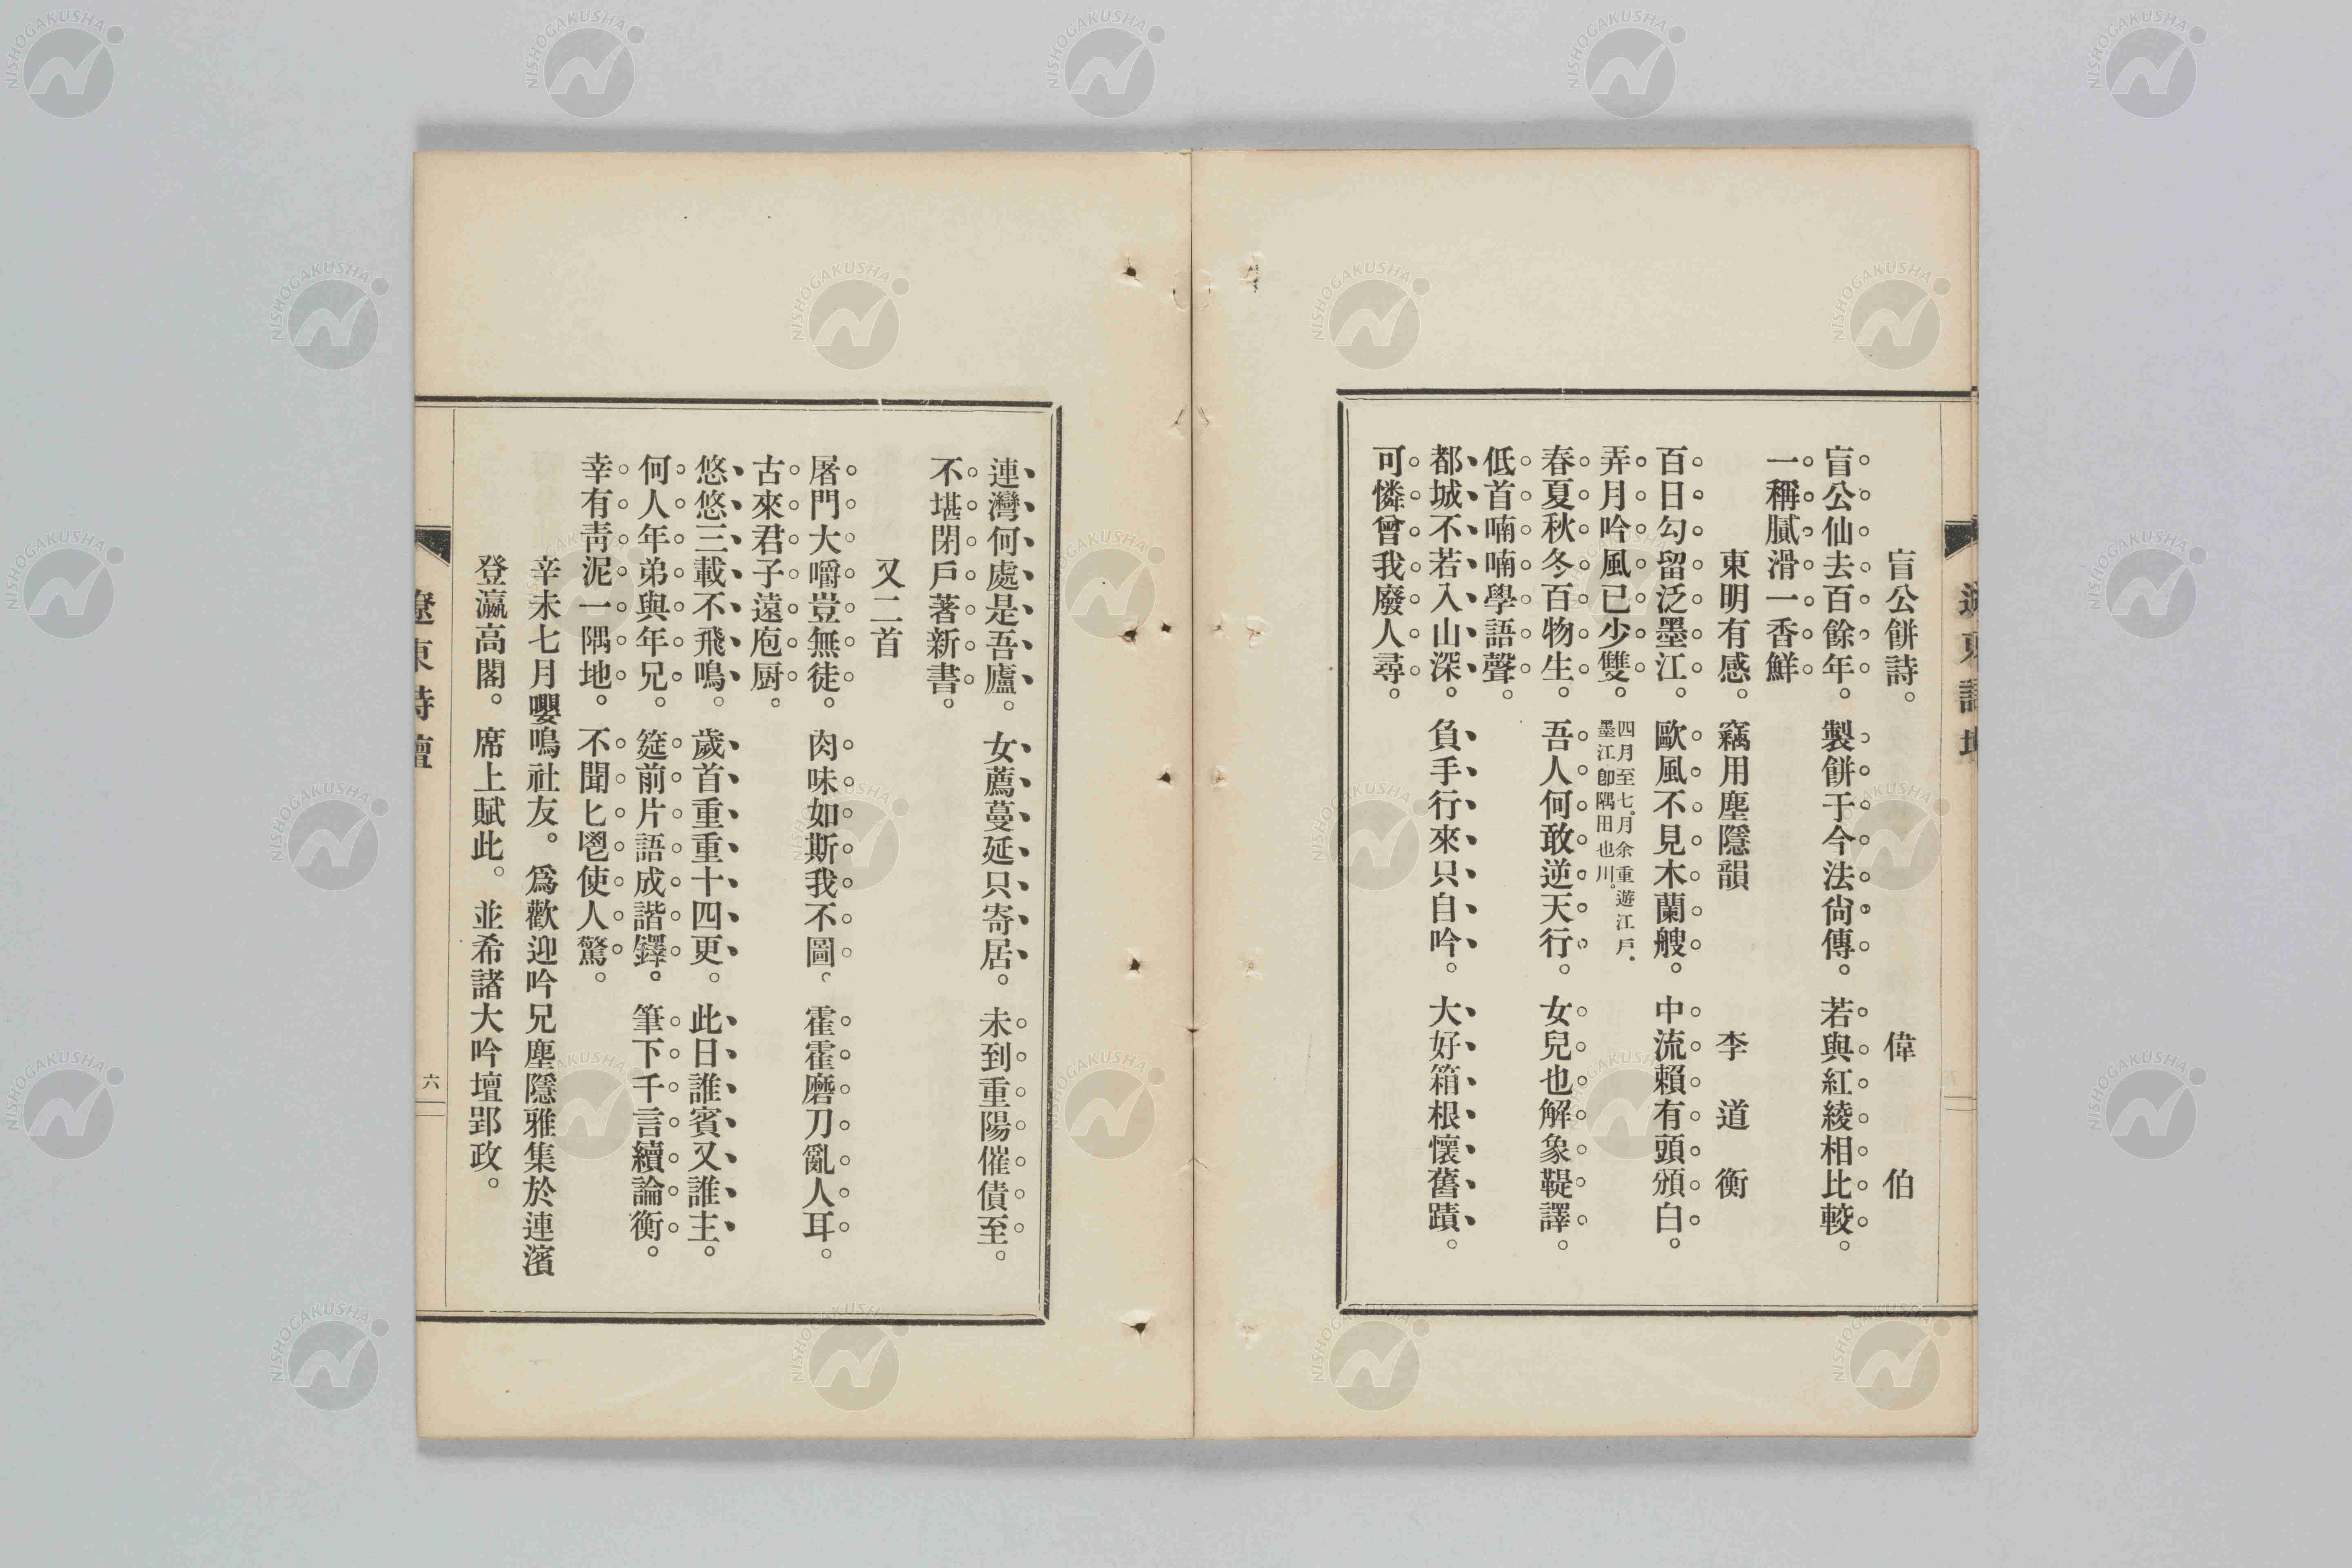 盲公餅詩。　偉伯
盲公仙去百餘年。製餅于今法尙傳。若與紅綾相比較。
一稱膩滑一香鮮
東明有感。竊用塵隱韻　李道衡
百日勾留泛墨江。歐風不見木蘭艘。中流賴有頭頒白。
弄月吟風已少雙。
四月至七月余重遊江戶。
墨江卽隅田也川。
春夏秋冬百物生。吾人何敢逆天行。女兒也解象鞮譯。
低首喃喃學語聲。
都城不若入山深。負手行來只自吟。大好箱根懷舊蹟。
可憐曾我廢人尋。
連灣何處是吾廬。女薦蔓延只寄居。未到重陽催債至。
不堪閉戶著新書。
又二首
屠門大嚼豈無徒。肉味如斯我不圖。霍霍磨刀亂人耳。
古來君子遠庖厨。
悠悠三載不飛鳴。歲首重重十四更。此日誰賓又誰主。
何人年弟與年兄。筵前片語成諧鐸。筆下千言續論衡。
幸有靑泥一隅地。不聞匕鬯使人驚。
辛未七月嚶鳴社友。爲歡迎吟兄塵隱雅集於連濱
登瀛高閣。席上賦此。並希諸大吟壇郢政。
遼東詩壇
六